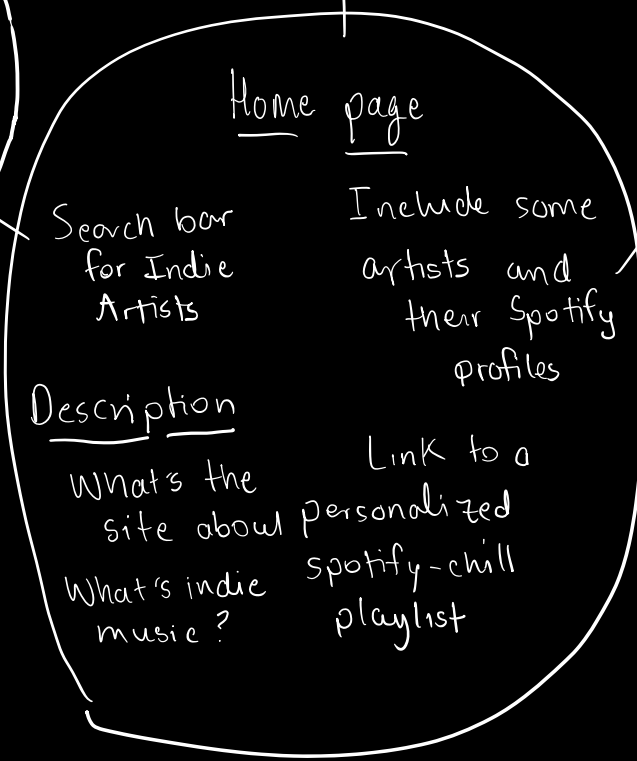 Home page
Search bar
for Indie
Artists
Include some
artists and
their Spotify
profiles
Description
What's the
site about
What's indie
music?
Link to a
personalized
spotify-chill
playlist